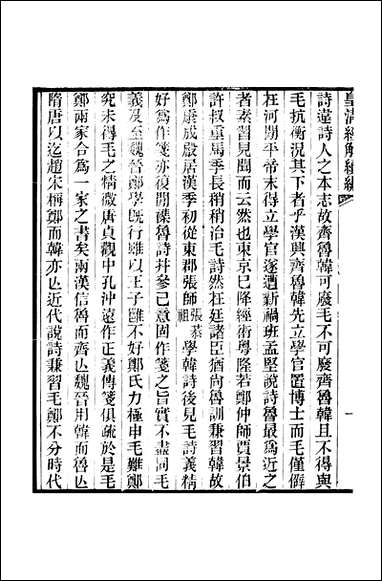 皇清經解續編
一
詩違詩人之本志故齊魯韓可廢毛不可廢齊魯韓且不得與
毛抗衡況其下者乎漢興齊魯韓先立學官置博士而毛僅僻
在河間平帝末得立學官遂遭新禍班孟堅說詩魯最為近之
者素習見聞而云然也東京已降經術粤隆若鄭仲師賈景伯
許叔重馬季長稍稍治毛詩然在廷諸臣猶尚魯訓兼習韓故
鄭康成殿居漢季初從東郡張師張恭祖學韓詩後見毛詩義精
好爲作箋亦復閒襍魯詩幷參己意固作箋之旨實不盡同毛
義及至魏晉鄭學旣行雖以王子雝不好鄭氏力極申毛難鄭
究未得毛之精微唐貞觀中孔沖遠作正義傳箋俱疏於是毛
鄭兩家合爲一家之書矣兩漢信魯而齊亾魏晉用韓而魯亾
隋唐以迄趙宋稱鄭而韓亦亾近代說詩兼習毛鄭不分時代